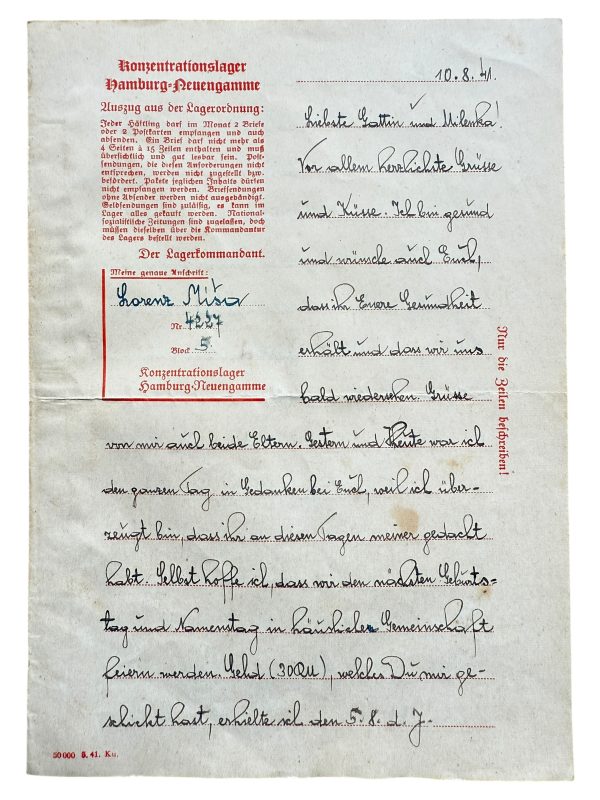 Konzentrationslager
Hamburg-Neuengamme
Auszug aus der Lagerordnung:
Jeder Häftling darf im Monat 2 Briefe
oder 2 Postkarten empfangen und auch
absenden. Ein Brief darf nicht mehr als
4 Seiten à 15 Zeilen enthalten und muß
übersichtlich und gut lesbar sein. Post-
sendungen, die diesen Anforderungen nicht
entsprechen, werden nicht zugestellt bzw.
befördert. Pakete jeglichen Inhalts dürfen
nicht empfangen werden. Briefsendungen
ohne Absender werden nicht ausgehändigt.
Geldsendungen sind zulässig, es kann im
Lager alles gekauft werden. National-
sozialistische Zeitungen sind zugelassen, doch
müssen dieselben über die Kommandantur
des Lagers bestellt werden.
Der Lagerkommandant.
Meine genaue Anschrift:
Lorenz Miša
Nr. 4237
Block 5
Konzentrationslager
Hamburg-Neuengamme
10.8.41.
Liebste Gattin und Milenka!
Vor allem herzlichste Grüsse
und Küsse. Ich bin gesund
und wünsche auch Euch,
dass ihr Euere Gesundheit
erhält und dass wir uns
bald wiedersehen. Grüsse
von mir auch beide Eltern. Gestern und Heute war ich
den ganzen Tag in Gedanken bei Euch, weil ich über-
zeugt bin, dass ihr an diesen Tagen meiner gedacht
habt. Selbst hoffe ich, dass wir den nächsten Geburts-
tag und Namenstag in häuslicher Gemeinschaft
feiern werden. Geld (30RM), welches Du mir ge-
schickt hast, erhielte ich den 5.8. d. J.
Nur die Zeilen beschreiben!
50000 3. 41. Ku.